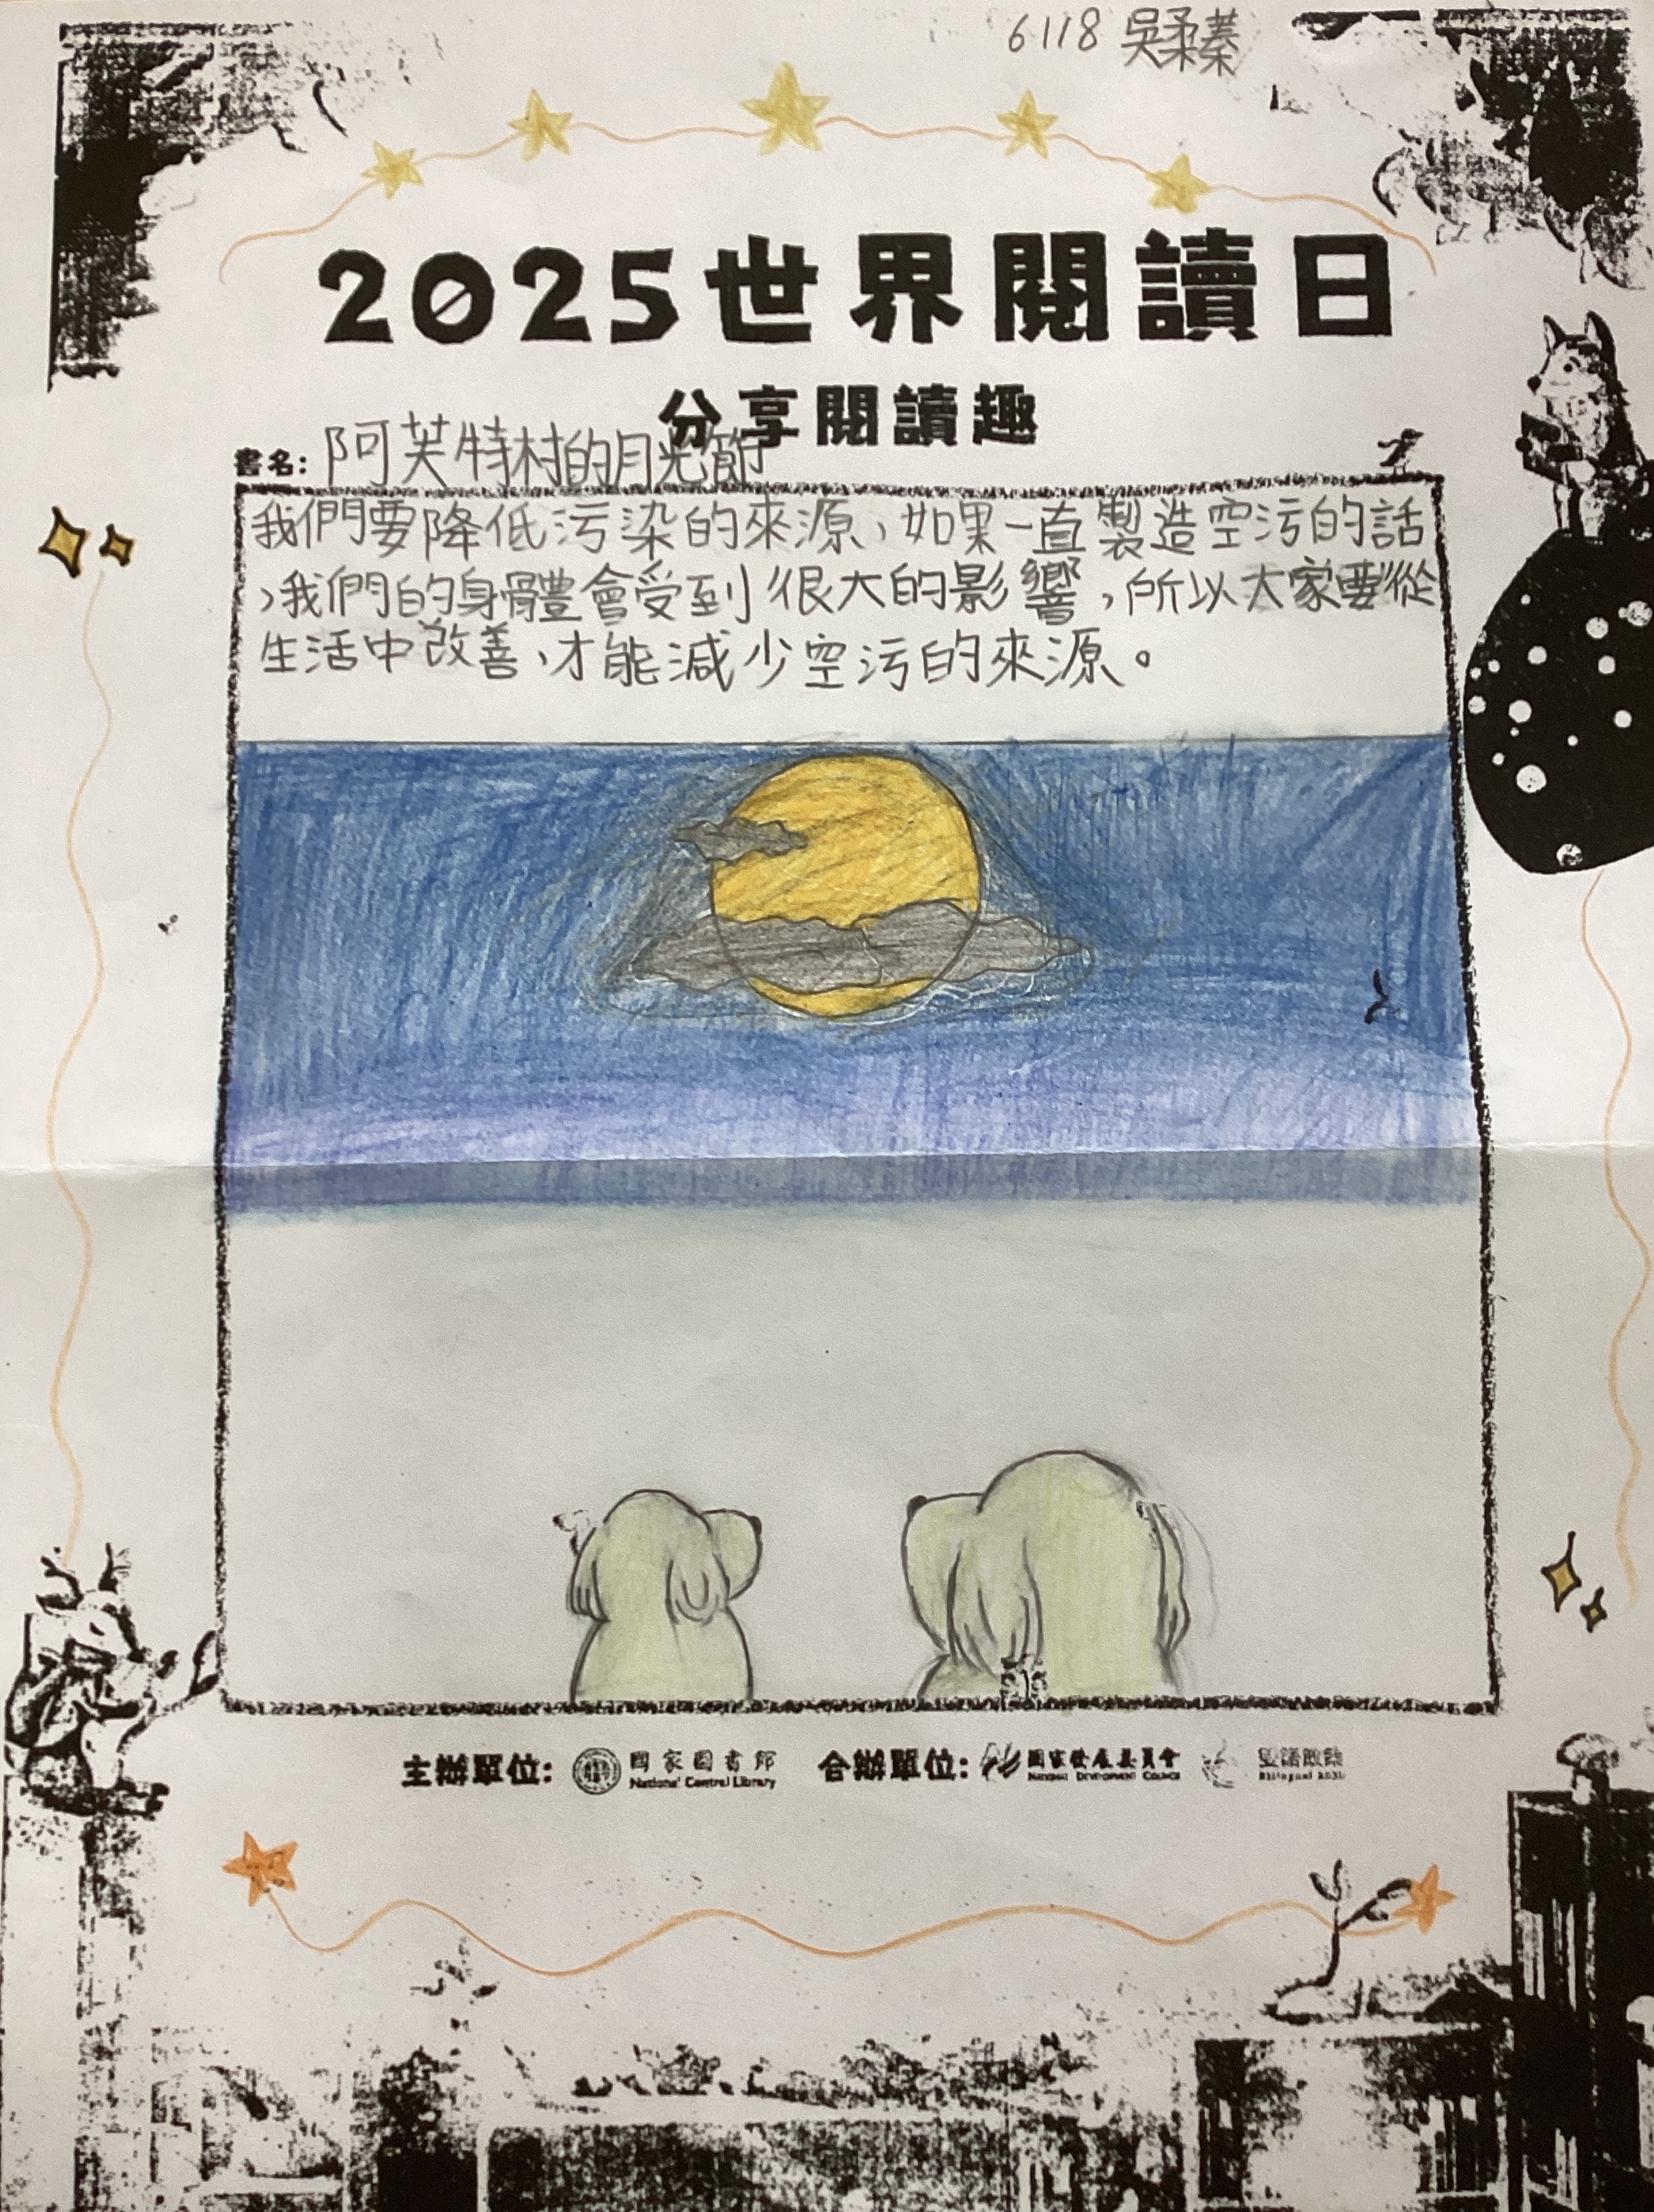 6118 吳柔蓁
2025世界閱讀日
分享閱讀趣
書名: 阿芙特村的月光節
我們要降低污染的來源,如果一直製造空污的話
,我們的身體會受到很大的影響,所以大家要從
生活中改善,才能減少空污的來源。
主辦單位: 國家圖書館 合辦單位: 國家發展委員會
National Central Library NATIONAL DEVELOPMENT COUNCIL Bilingual